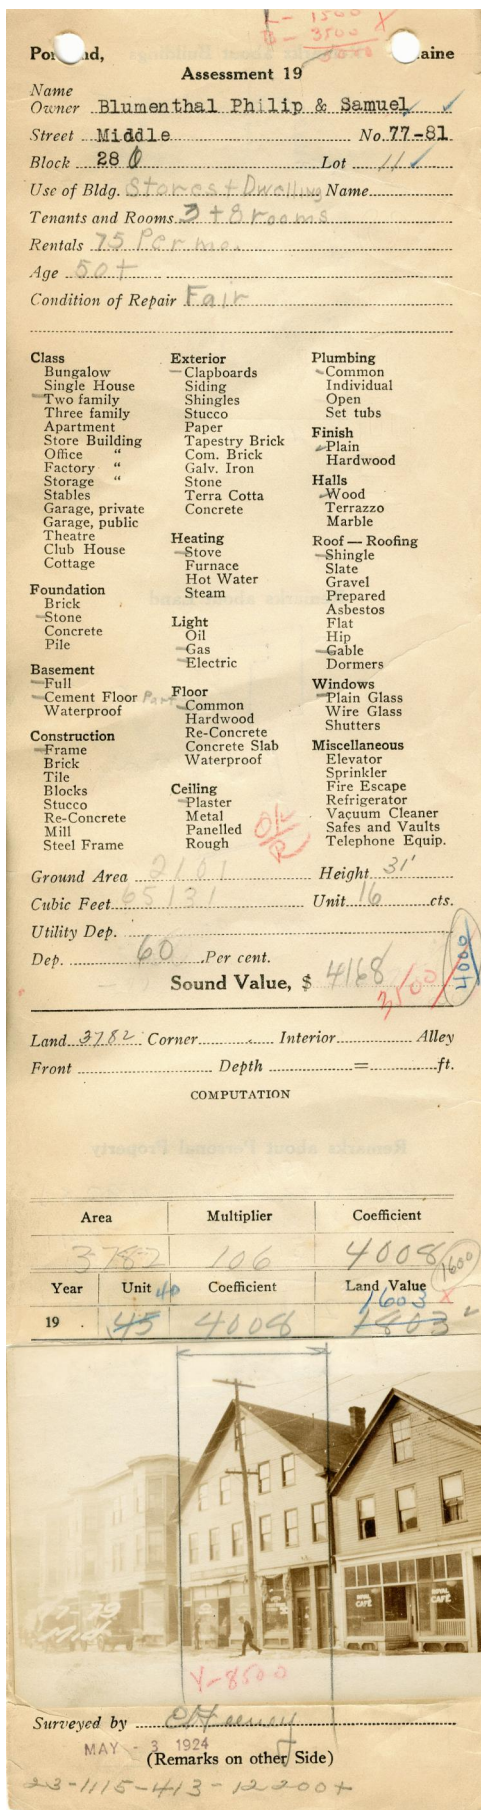 L - 1500 X
B - 3500
5000
Portland, Maine
Assessment 19
Name
Owner Blumenthal Philip & Samuel
Street Middle No. 77-81
Block 28 Lot 11
Use of Bldg. Stores + Dwelling Name
Tenants and Rooms 3 + 8 rooms
Rentals 75 Per mo.
Age 50+
Condition of Repair Fair
Class
Bungalow
Single House
Two family
Three family
Apartment
Store Building
Office "
Factory "
Storage "
Stables
Garage, private
Garage, public
Theatre
Club House
Cottage
Foundation
Brick
Stone
Concrete
Pile
Basement
Full
Cement Floor Part
Waterproof
Construction
Frame
Brick
Tile
Blocks
Stucco
Re-Concrete
Mill
Steel Frame
Exterior
Clapboards
Siding
Shingles
Stucco
Paper
Tapestry Brick
Com. Brick
Galv. Iron
Stone
Terra Cotta
Concrete
Heating
Stove
Furnace
Hot Water
Steam
Light
Oil
Gas
Electric
Floor
Common
Hardwood
Re-Concrete
Concrete Slab
Waterproof
Ceiling
Plaster
Metal
Panelled
Rough
Plumbing
Common
Individual
Open
Set tubs
Finish
Plain
Hardwood
Halls
Wood
Terrazzo
Marble
Roof — Roofing
Shingle
Slate
Gravel
Prepared
Asbestos
Flat
Hip
Gable
Dormers
Windows
Plain Glass
Wire Glass
Shutters
Miscellaneous
Elevator
Sprinkler
Fire Escape
Refrigerator
Vacuum Cleaner
Safes and Vaults
Telephone Equip.
Ground Area 2101 Height 31'
Cubic Feet 65131 Unit 16 cts.
Utility Dep.
Dep. 60 Per cent.
4000
Sound Value, $ 4168
3500
Land 3782 Corner Interior Alley
Front Depth = ft.
COMPUTATION
Area Multiplier Coefficient
3782 106 4008
1600
Year Unit 40 Coefficient Land Value
1603 X
19 45 4008 1803
77-79
Mid.
ROYAL CAFE
ROYAL CAFE
V-8500
Surveyed by
MAY - 3 1924
(Remarks on other Side)
23-1115-413-12200+